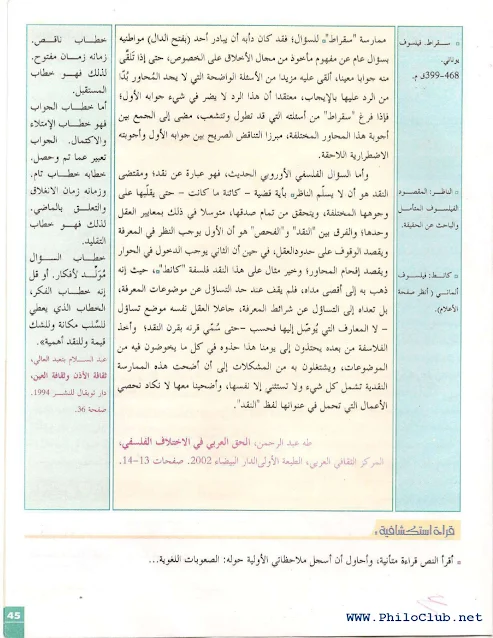 ممارسة "سقراط"* للسؤال؛ فقد كان دأبه أن يبادر أحد (بفتح الدال) مواطنيه
بسؤال عام عن مفهوم مأخوذ من مجال الأخلاق على الخصوص، حتى إذا تلقّى
منه جوابا معينا، ألقى عليه مزيدا من الأسئلة الواضحة التي لا يجد المُحاور بُدّا
من الرد عليها بالإيجاب، معتقدا أن هذا الرد لا يضر في شيء جوابه الأول؛
فإذا فرغ "سقراط" من أسئلته التي قد تطول وتتشعب، مضى إلى الجمع بين
أجوبة هذا المحاور المختلفة، مبرزا التناقض الصريح بين جوابه الأول وأجوبته
الاضطرارية اللاحقة.
وأما السؤال الفلسفي الأوروبي الحديث، فهو عبارة عن نقد؛ ومقتضى
النقد هو أن لا يسلّم الناظر* بأية قضية – كائنة ما كانت – حتى يقلّبها على
وجوهها المختلفة، ويتحقق من تمام صدقها، متوسلا في ذلك بمعايير العقل
وحدها؛ والفرق بين "النقد" و"الفحص" هو أن الأول يوجب النظر في المعرفة
ويقصد الوقوف على حدود العقل، في حين أن الثاني يوجب الدخول في الحوار
ويقصد إفحام المحاور؛ وخير مثال على هذا النقد فلسفة "كانط"*، حيث إنه
ذهب به إلى أقصى مداه، فلم يقف عند حد التساؤل عن موضوعات المعرفة،
بل تعداه إلى التساؤل عن شرائط المعرفة، جاعلا العقل نفسه موضع تساؤل
– لا المعارف التي يُوصل إليها فحسب –حتى سُمّي قرنه بقرن النقد؛ وأخذ
الفلاسفة من بعده يحتذون إلى يومنا هذا حذوه في كل ما يخوضون فيه من
الموضوعات، ويشتغلون به من المشكلات إلى أن أضحت هذه الممارسة
النقدية تشمل كل شيء ولا تستثني إلا نفسها، وأضحينا معها لا نكاد نحصي
الأعمال التي تحمل في عنوانها لفظ "النقد".
طه عبد الرحمن، الحق العربي في الاختلاف الفلسفي،
المركز الثقافي العربي، الطبعة الأولى الدار البيضاء 2002. صفحات 13–14.
* سقراط: فيلسوف
يوناني.
468–399ق م.
* الناظر: المقصود
الفيلسوف المتأمل
والباحث عن الحقيقة.
* كانط: فيلسوف
ألماني ( أنظر صفحة
الأعلام).
خطاب ناقص.
زمانه زمان مفتوح.
لذلك فهو خطاب
المستقبل.
أما خطاب الجواب
فهو خطاب الإمتلاء
والاكتمال. الجواب
تعبير عما تم وحصل.
خطابه خطاب تام.
وزمانه زمان الانغلاق
والتعلق بالماضي.
لذلك فهو خطاب
التقليد.
خطاب السؤال
مُوَلّد لأفكار. أو قل
إنه خطاب الفكر،
الخطاب الذي يعطي
للسّلب مكانة وللشك
قيمة وللنقد أهمية».
عبد السلام بنعبد العالي،
ثقافة الأذن وثقافة العين،
دار توبقال للنشر 1994.
صفحة 36.
قراءة استكشافية:
* أقرأ النص قراءة متأنية، وأحاول أن أسجل ملاحظاتي الأولية حوله: الصعوبات اللغوية...
45
www.PhiloClub.net